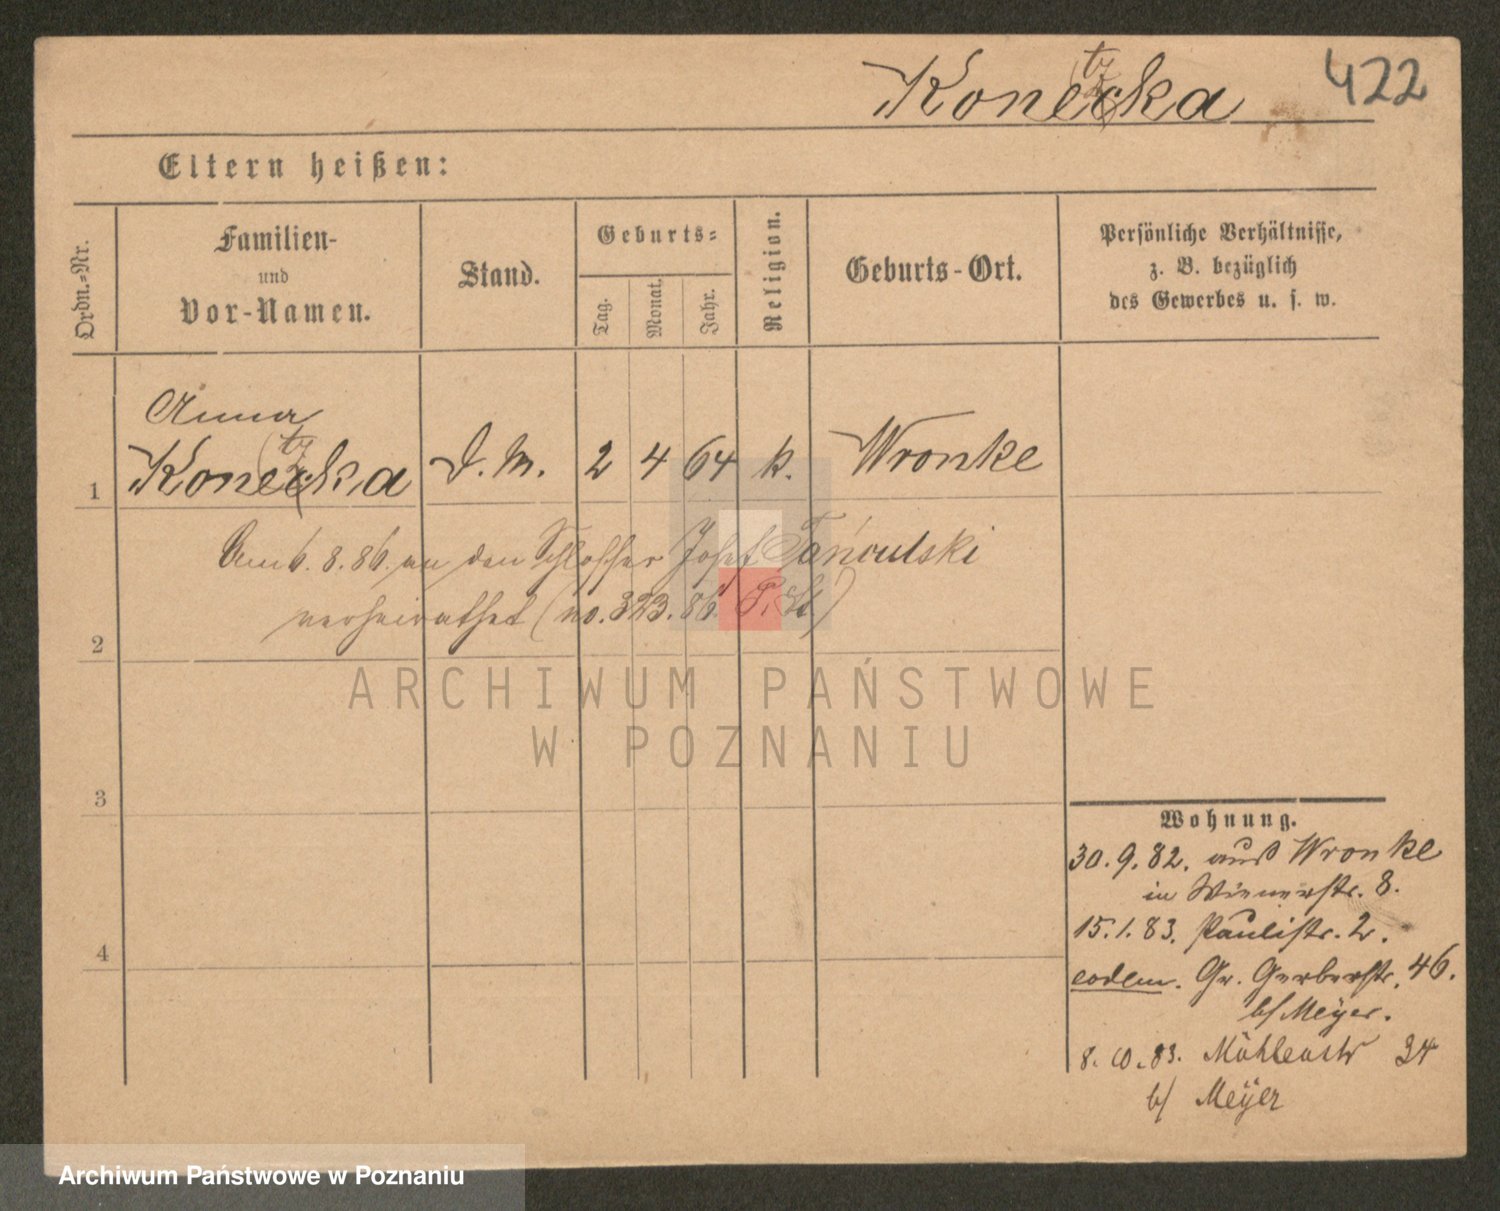 tz
Konecka 422
Eltern heißen:
Ordn.-Nr.
Familien-
und
Vor-Namen.
Stand.
Geburts-
Tag.
Monat.
Jahr.
Religion.
Geburts-Ort.
Persönliche Verhältnisse,
z. B. bezüglich
des Gewerbes u. s. w.
Anna
tz
1 Konecka D. M. 2 4 64 k. Wronke
Am 6. 8. 86. an den Schlosser Josef
2 verheirathet (no. 323. 86. P. St)
ARCHIWUM PAŃSTWOWE
W POZNANIU
3
4
Wohnung.
30. 9. 82. aus Wronke
in Wienerstr. 8.
15. 1. 83. Paulistr. 2.
eodem. Gr. Gerberstr. 46.
b/ Meÿer.
8. 10. 83. Mühlenstr 34
b/ Meÿer
Archiwum Państwowe w Poznaniu